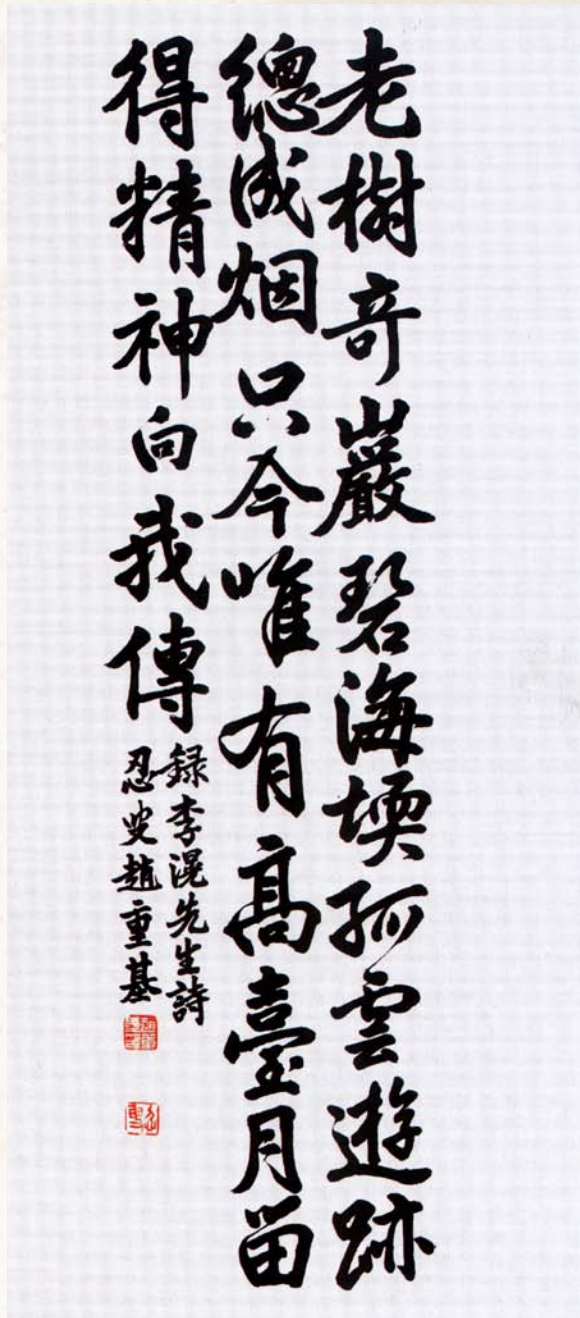 老樹奇巖碧海堧孤雲遊跡
總成烟只今唯有高臺月留
得精神向我傳
録李滉先生詩
忍史趙重基